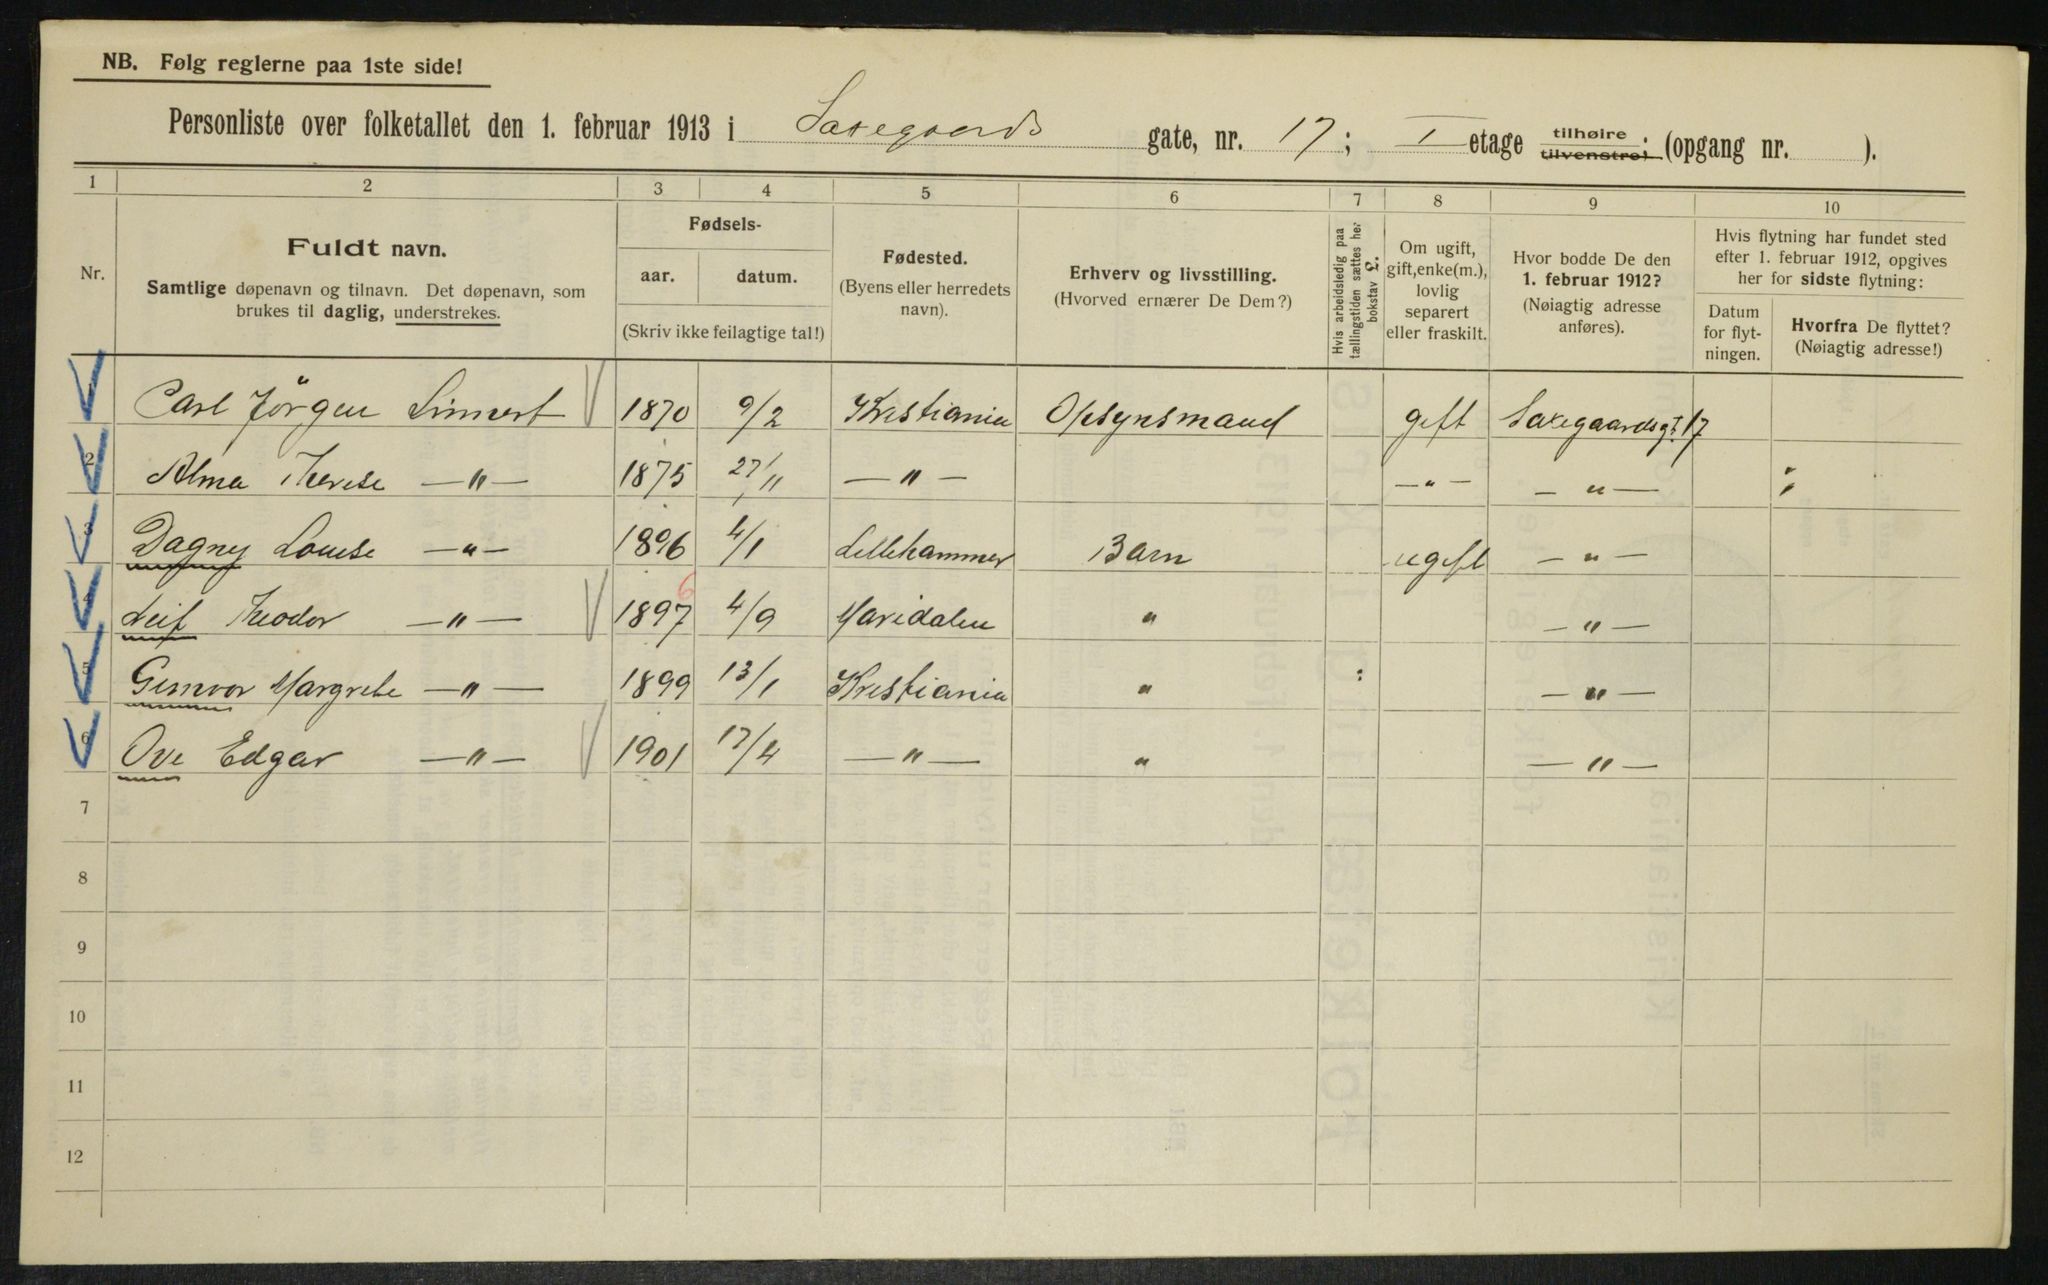 NB. Følg reglerne paa 1ste side!
Personliste over folketallet den 1. februar 1913 i Saxegaards gate, nr. 17; I etage tilhøire tilvenstre; (opgang nr. ).
1 2 3 4 5 6 7 8 9 10
Nr.
Fuldt navn.
Samtlige døpenavn og tilnavn. Det døpenavn, som
brukes til daglig, understrekes.
Fødsels-
aar. datum.
(Skriv ikke feilagtige tal!)
Fødested.
(Byens eller herredets
navn).
Erhverv og livsstilling.
(Hvorved ernærer De Dem?)
Hvis arbeidsledig paa
tællingstiden sættes her
bokstav L.
Om ugift,
gift, enke(m.),
lovlig
separert
eller fraskilt.
Hvor bodde De den
1. februar 1912?
(Nøiagtig adresse
anføres).
Hvis flytning har fundet sted
efter 1. februar 1912, opgives
her for sidste flytning:
Datum
for flyt-
ningen.
Hvorfra De flyttet?
(Nøiagtig adresse!)
1 Carl Jörgen Linnert 1870 9/2 Kristiania Opsynsmand gift Saxegaardsgt. 17
2 Alma Therese —"— 1875 27/11 —"— —"— —"—
3 Dagny Louise —"— 1896 4/1 Lillehammer Barn ugift —"—
4 Leif Theodor —"— 1897 6 4/9 Maridalen " —"—
5 Gunvor Margrete —"— 1899 13/1 Kristiania " —"—
6 Ove Edgar —"— 1901 17/4 —"— " —"—
7
8
9
10
11
12